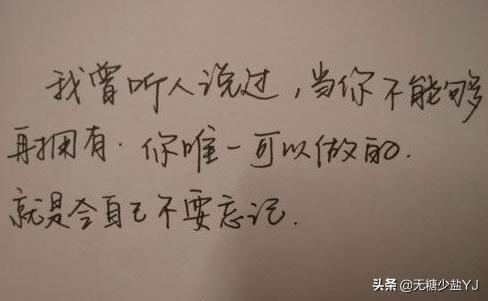 我曾听人说过，当你不能够
再拥有．你唯一可以做的．
就是令自己不要忘记．
头条 @无糖少盐YJ